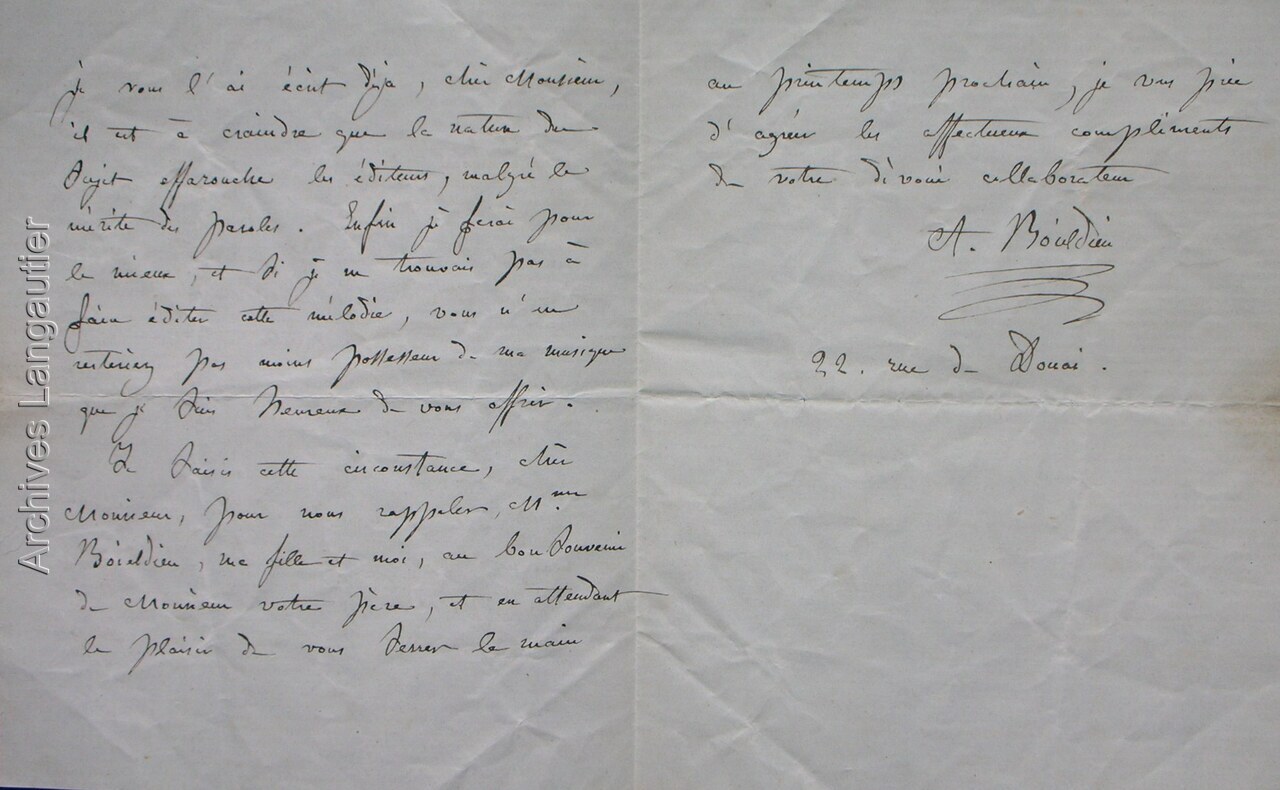 je vous l'ai écrit déjà, cher Monsieur,
il est à craindre que la nature du
sujet effarouche les éditeurs, malgré le
mérite des paroles. Enfin je ferai pour
le mieux, et si je ne trouvais pas à
faire éditer cette mélodie, vous n'en
resteriez pas moins possesseur de ma musique
que je suis heureux de vous offrir.
Je saisis cette circonstance, cher
Monsieur, pour nous rappeler, Mme
Boïeldieu, ma fille et moi, au bon souvenir
de Monsieur votre père, et en attendant
le plaisir de vous serrer la main
au printemps prochain, je vous prie
d'agréer les affectueux compliments
de votre dévoué collaborateur
A. Boïeldieu
22. rue de Douai.
Archives Langautier